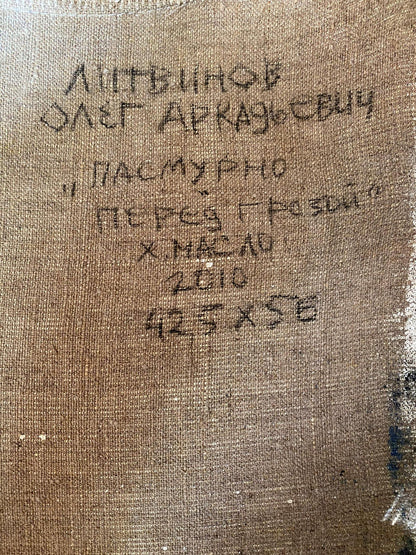 ЛИТВИНОВ
ОЛЕГ АРКАДЬЕВИЧ
„ПАСМУРНО
ПЕРЕД ГРОЗОЙ“
Х. МАСЛО
2010
42,5 X 56